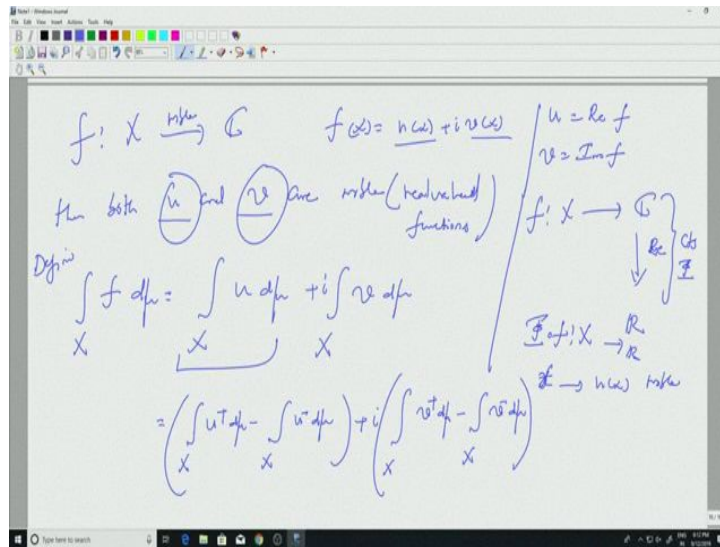 Note1 - Windows Journal
File Edit View Insert Actions Tools Help
f: X →^{mble} ℂ
f(x) = u(x) + i v(x)
u = Re f
v = Im f
then both u and v are mble (real valued functions)
f: X → ℂ
Re
cts
Φ
Define
∫_X f dμ = ∫_X u dμ + i ∫_X v dμ
Φ∘f: X → ℝ
→ ℝ
x → u(x) mble
= (∫_X u⁺ dμ - ∫_X u⁻ dμ) + i (∫_X v⁺ dμ - ∫_X v⁻ dμ)
Type here to search